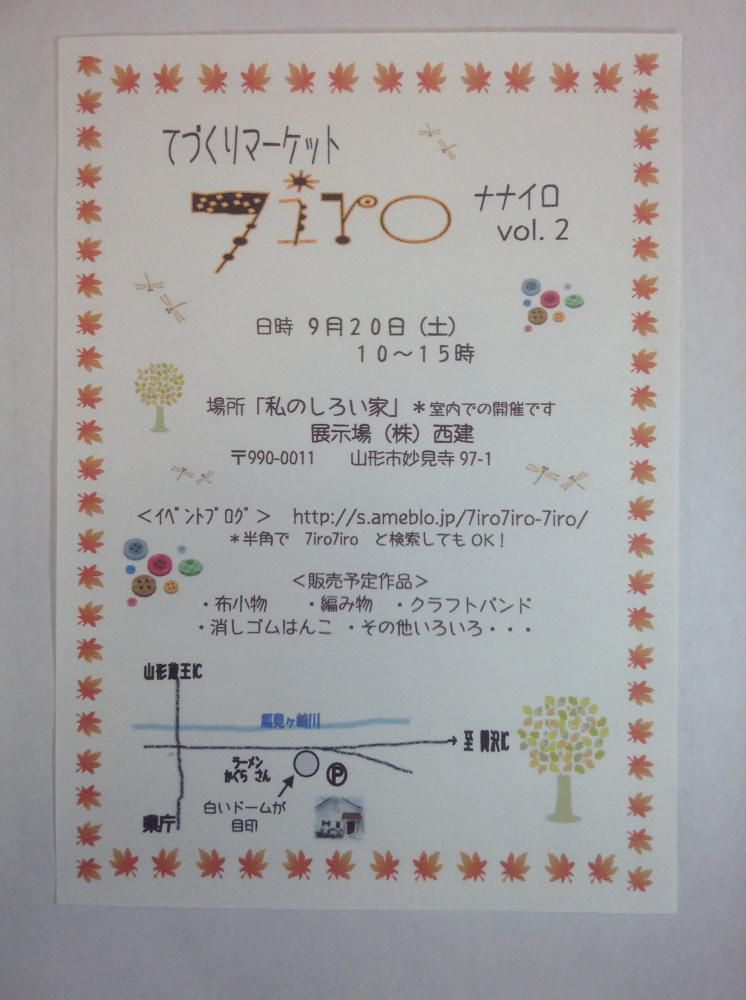 てづくりマーケット
7iro ナナイロ
vol. 2
日時 9月20日（土）
10～15時
場所「私のしろい家」＊室内での開催です
展示場（株）西建
〒990-0011 山形市妙見寺 97-1
＜ｲﾍﾞﾝﾄﾌﾞﾛｸﾞ＞ http://s.ameblo.jp/7iro7iro-7iro/
＊半角で 7iro7iro と検索してもOK！
＜販売予定作品＞
・布小物 ・編み物 ・クラフトバンド
・消しゴムはんこ ・その他いろいろ・・・
山形蔵王IC
馬見ヶ崎川
至 関沢IC
ラーメン
かぐら さん
P
白いドームが
目印
県庁